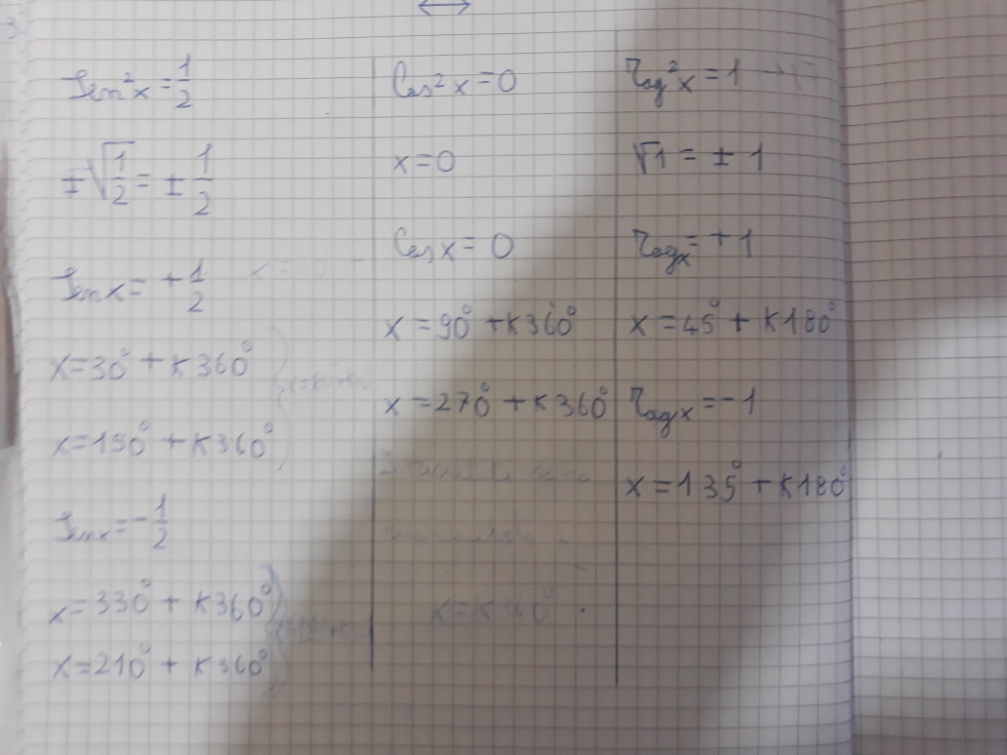 Sen²x = 1/2
±√1/2 = ± 1/2
Senx = +1/2
x=30° + K360°
x=150° + K360°
Senx = -1/2
x=330° + K360°
x=210° + K360°
Cos²x=0
x=0
Cosx=0
x=90° + K360°
x=270° + K360°
x=K360°
Tag²x = 1
√1 = ± 1
Tagx = +1
x = 45° + K180°
Tagx = -1
x = 135° + K180°